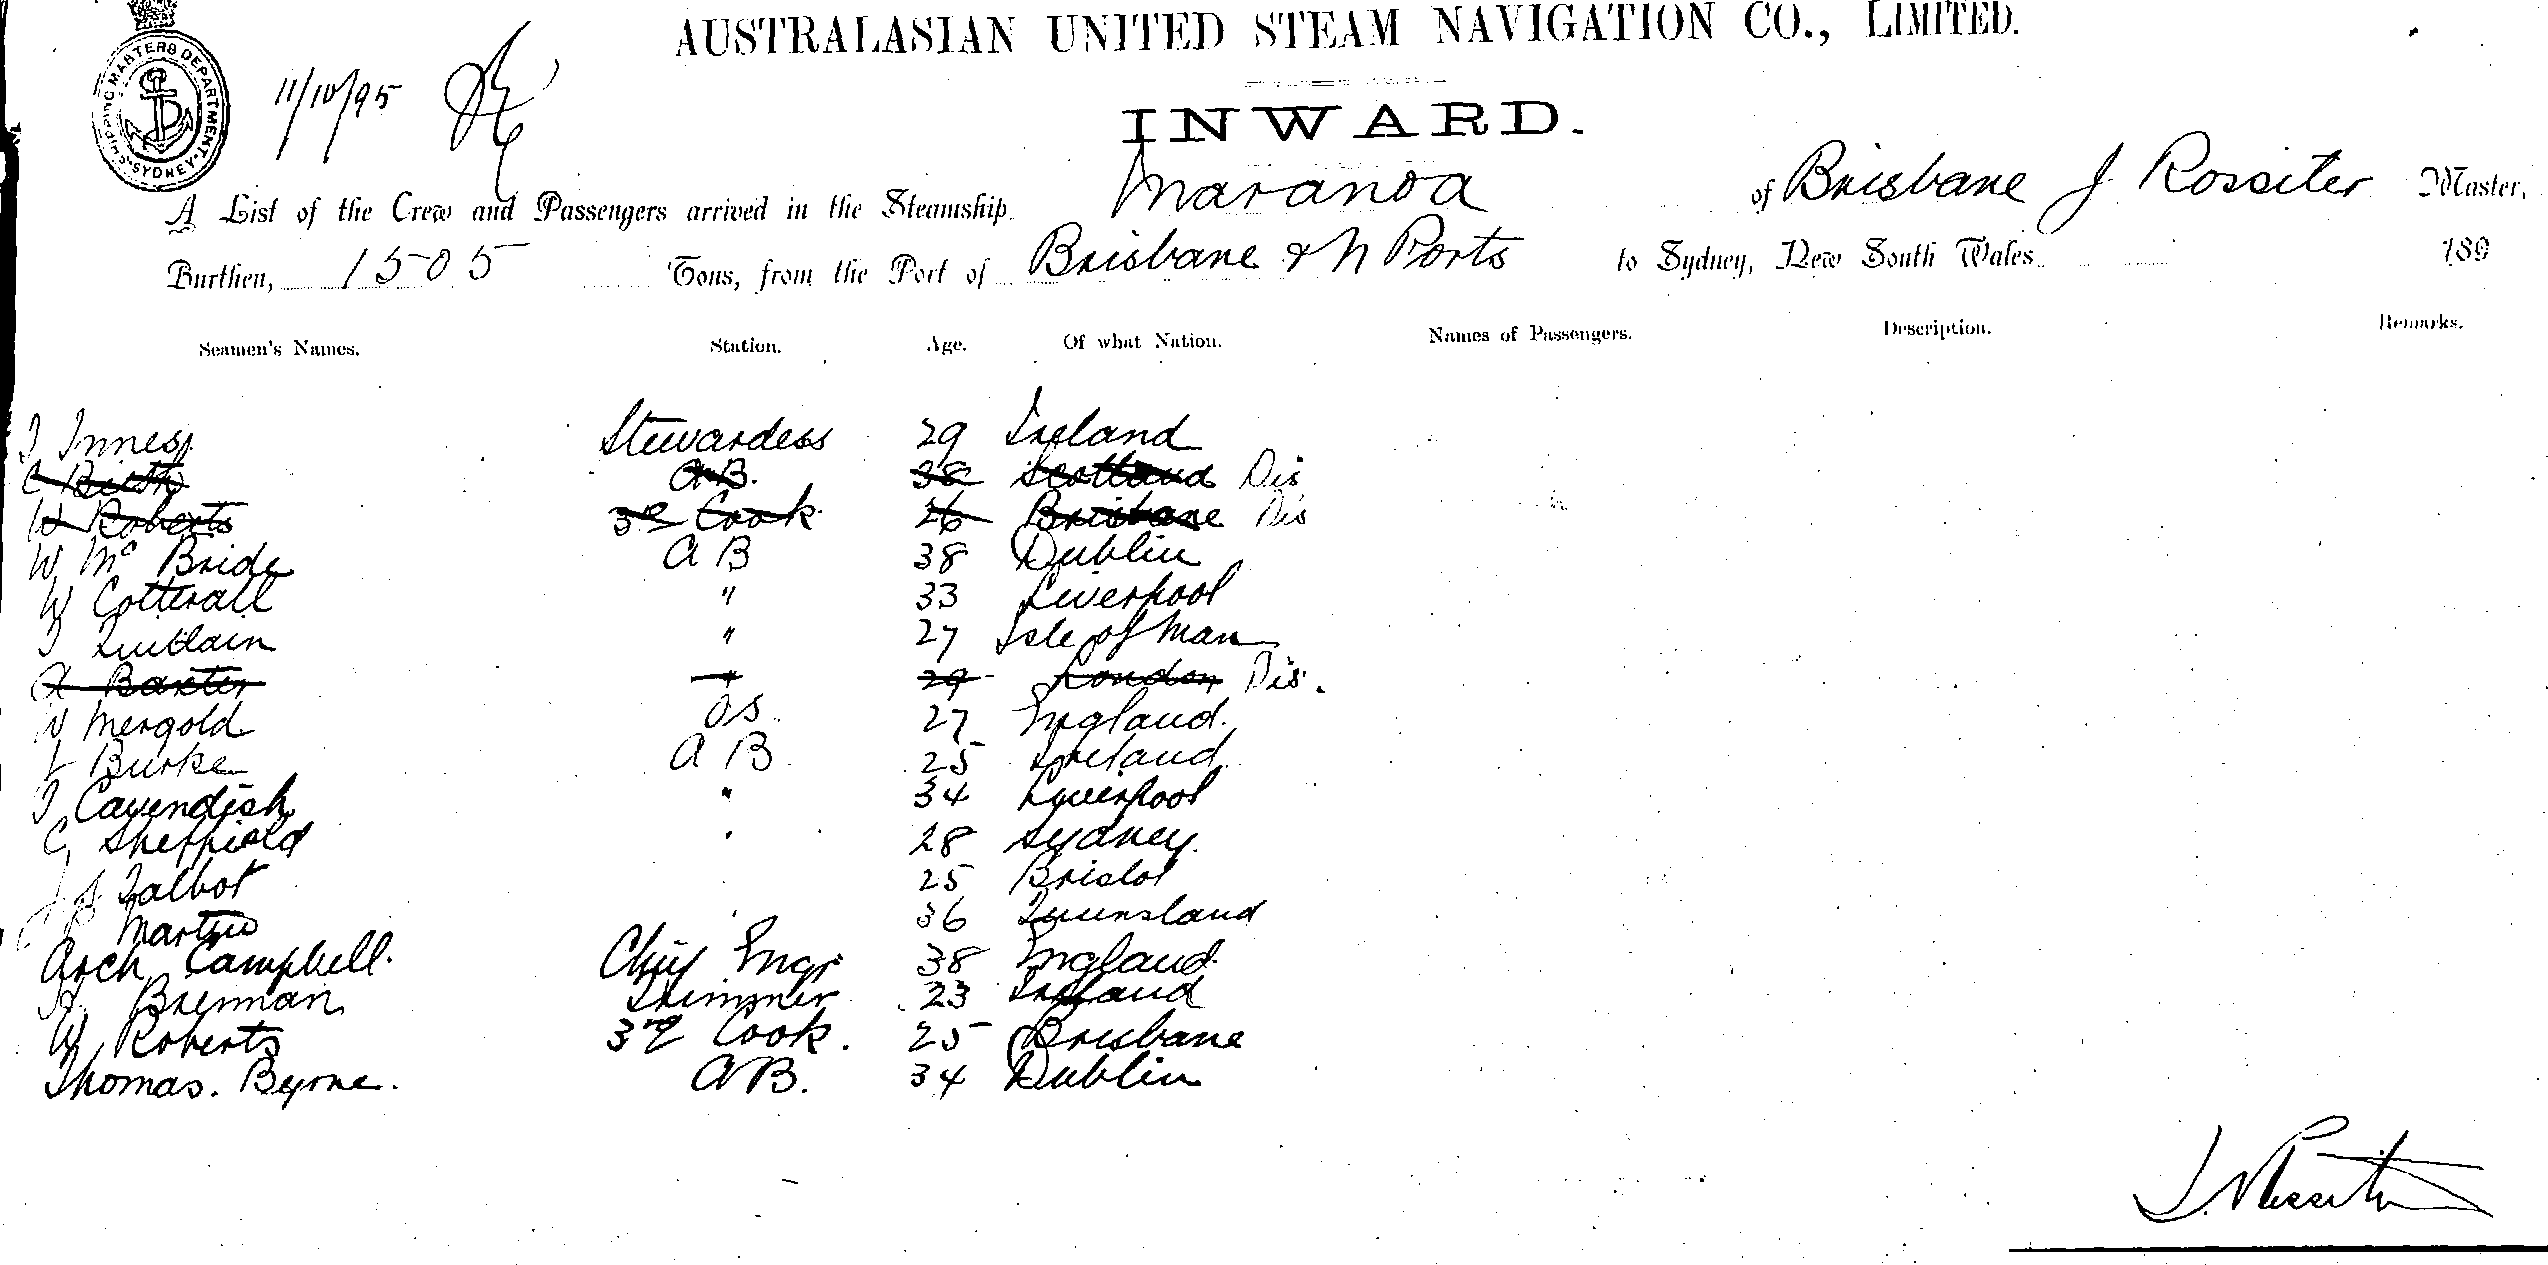 AUSTRALASIAN UNITED STEAM NAVIGATION CO., LIMITED.
SHIPPING MASTERS DEPARTMENT SYDNEY
11/10/95
INWARD.
A List of the Crew and Passengers arrived in the Steamship Maranoa of Brisbane J Rossiter Master,
Burthen, 1505 Tons, from the Port of Brisbane & N Ports to Sydney, New South Wales 189
Seamen's Names. Station. Age. Of what Nation. Names of Passengers. Description. Remarks.
Innes Stewardess 29 Ireland
AB. 38 Scotland Dis
W Roberts 3rd Cook 26 Brisbane Dis
W Mc Bride A B 38 Dublin
W Cotterall " 33 Liverpool
" 27 Isle of Man
A Baxter " 29 London Dis.
Mergold OS. 27 England.
Burke A B 25 Ireland
Cavendish " 34 Liverpool
C Sheffield " 28 Sydney.
Talbot 25 Bristol
Martin 36 Queensland
Arch Campbell. Chief Engr 38 England
Brennan Trimmer 23 Ireland
W Roberts 3rd Cook. 25 Brisbane
Thomas. Byrne. AB. 34 Dublin
J. Rossiter